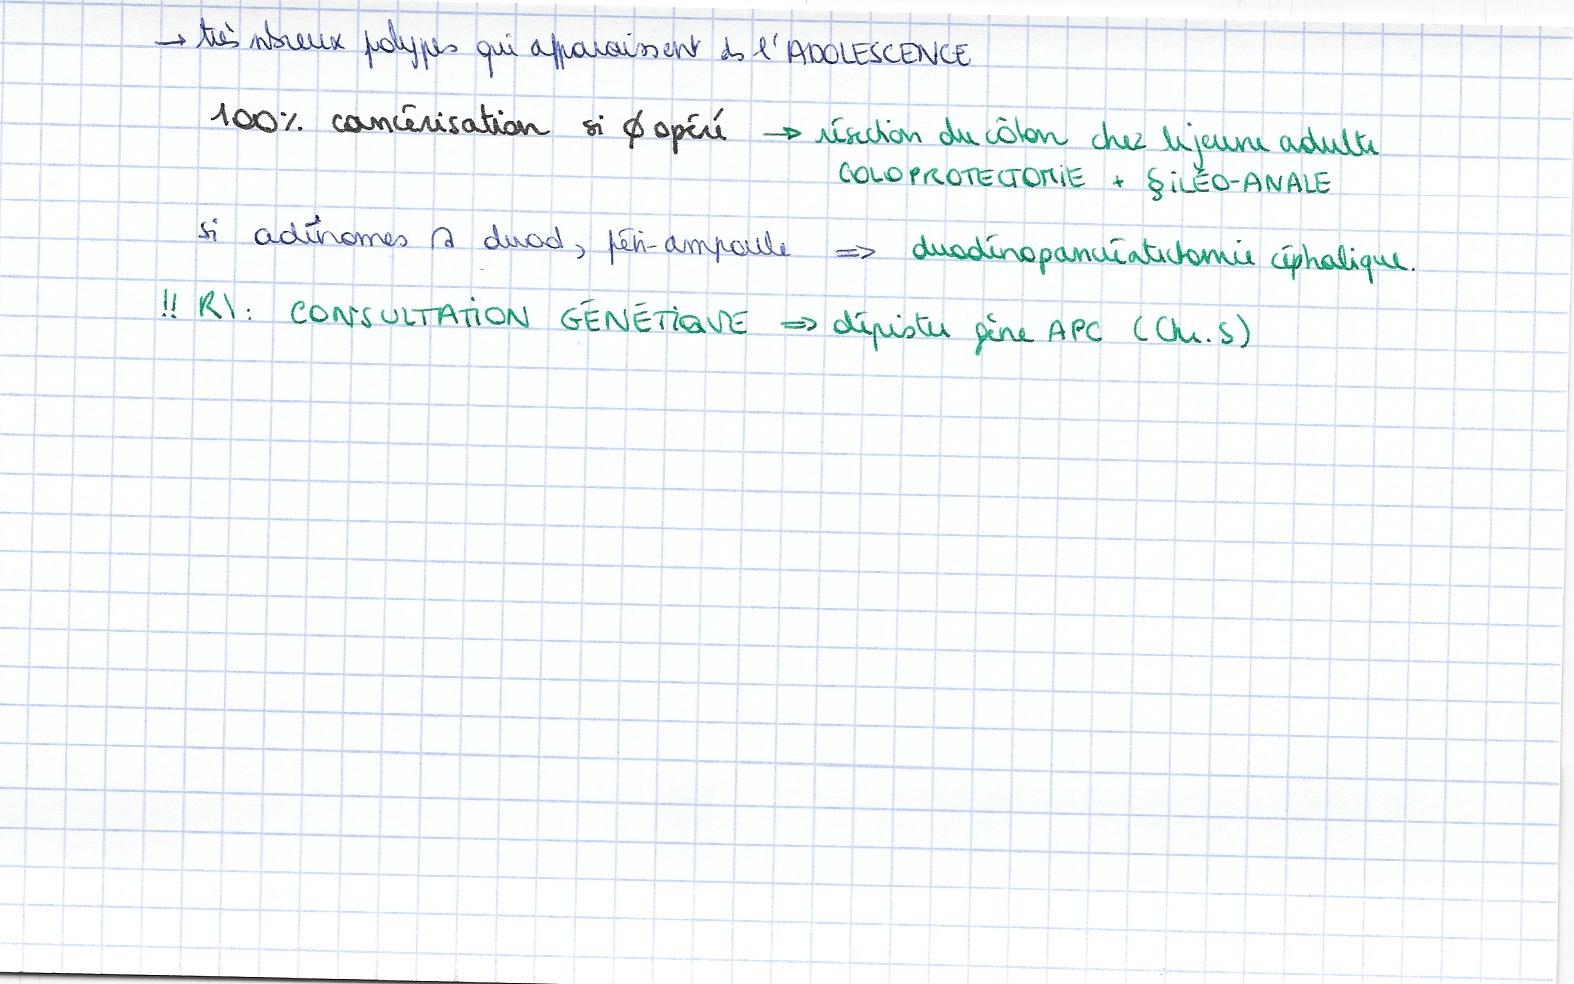 → très nbreux polypes qui apparaissent ds l'ADOLESCENCE
100% cancérisation si ∅ opéré → résection du côlon chez le jeune adulte
COLOPROTECTOMIE + § iLÉO-ANALE
si adénomes duod, péri-ampoule => duodénopancréatectomie céphalique.
!! R\: CONSULTATiON GÉNÉTiQUE => dépister gène APC (Chr. 5)